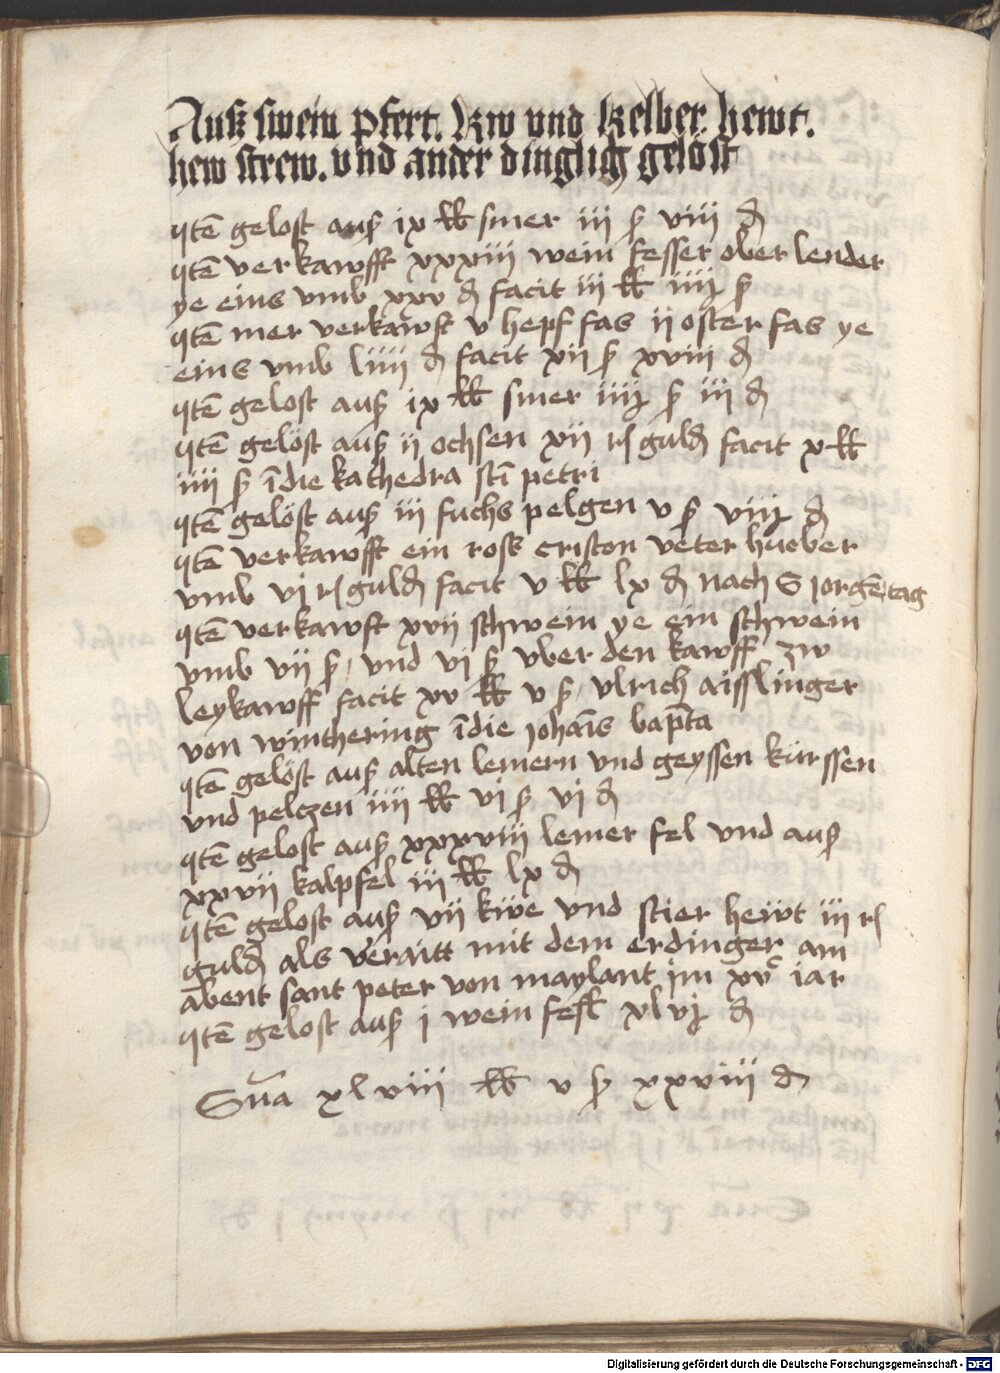 Auß swein pfert. kw vnd kelber hewt.
hew strew. vnd ander dinglich gelöst
Itē gelost auß ix lb smer iii ß viii d
Itē verkawfft xxxiii wein fesser ober lender
ye eins vmb xxv d facit iii lb iiij ß
Itē mer verkawft v hepf fas ij oster fas ye
eins vmb liiij d facit xii ß xviii d
Itē gelost auß ix lb smer iiij ß iij d
Itē gelöst auß ij ochsen xij rh guld facit x lb
iiij ß ī die kathedra sti petri
Itē gelöst auß iij fuchs pelgen v ß viij d
Itē verkawfft ein rosß criston veter hueber
vmb vj rh guld facit v lb lx d nach S Jorgē tag
Itē verkawft xvij schwein ye ein schwein
vmb vij ß, vnd vj ß vber den kawff zw
leykawff facit xv lb v ß, vlrich aisslinger
von winthering ī die Johānis bapt̄a
Itē gelöst auß alten lemern vnd geyssen kürssen
vnd pelczen iiij lb vj ß vj d
Itē gelost auß xxxviii lemer fel vnd auß
xxvij kalpfel iij lb lx d
Itē gelost auß vij küe vnd stier hewt iij rh
guld als veraitt mit dem erdinger am
abent sant peter von maylant im xvc iar
Itē gelost auß j wein feßl xlvj d
Suā xlviii lb v ß xxviii d
Digitalisierung gefördert durch die Deutsche Forschungsgemeinschaft - DFG